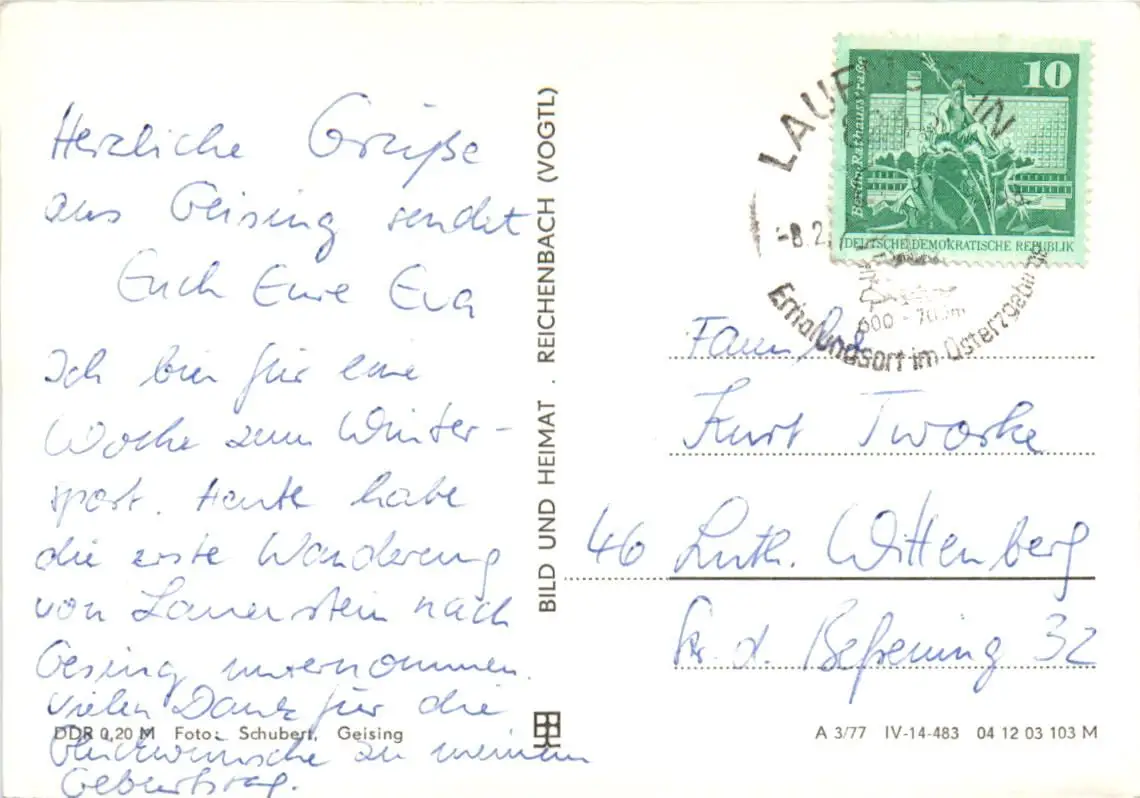 Herzliche Grüße
aus Geising sendet
Euch Eure Eva
Ich bin für eine
Woche zum Winter-
sport. Heute habe
die erste Wanderung
von Lauenstein nach
Gesing unternommen.
Vielen Dank für die
Glückwünsche zu meinem
Geburtstag.
DDR 0,20 M Foto: Schubert, Geising
BILD UND HEIMAT . REICHENBACH (VOGTL)
10
Berlin, Rathausstraße
DEUTSCHE DEMOKRATISCHE REPUBLIK
LAUENSTEIN
-8.2.
600 - 700m
Erholungsort im Osterzgebirge
Familie
Kurt Tworke
46 Luth. Wittenberg
Str. d. Befreiung 32
A 3/77 IV-14-483 04 12 03 103 M